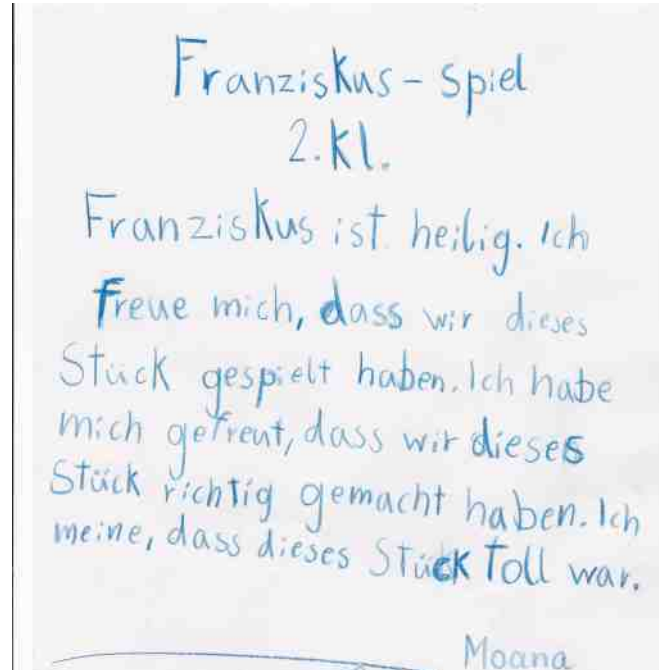 Franziskus - Spiel
2. Kl.
Franziskus ist heilig. Ich
freue mich, dass wir dieses
Stück gespielt haben. Ich habe
mich gefreut, dass wir dieses
Stück richtig gemacht haben. Ich
meine, dass dieses Stück toll war.
Moana